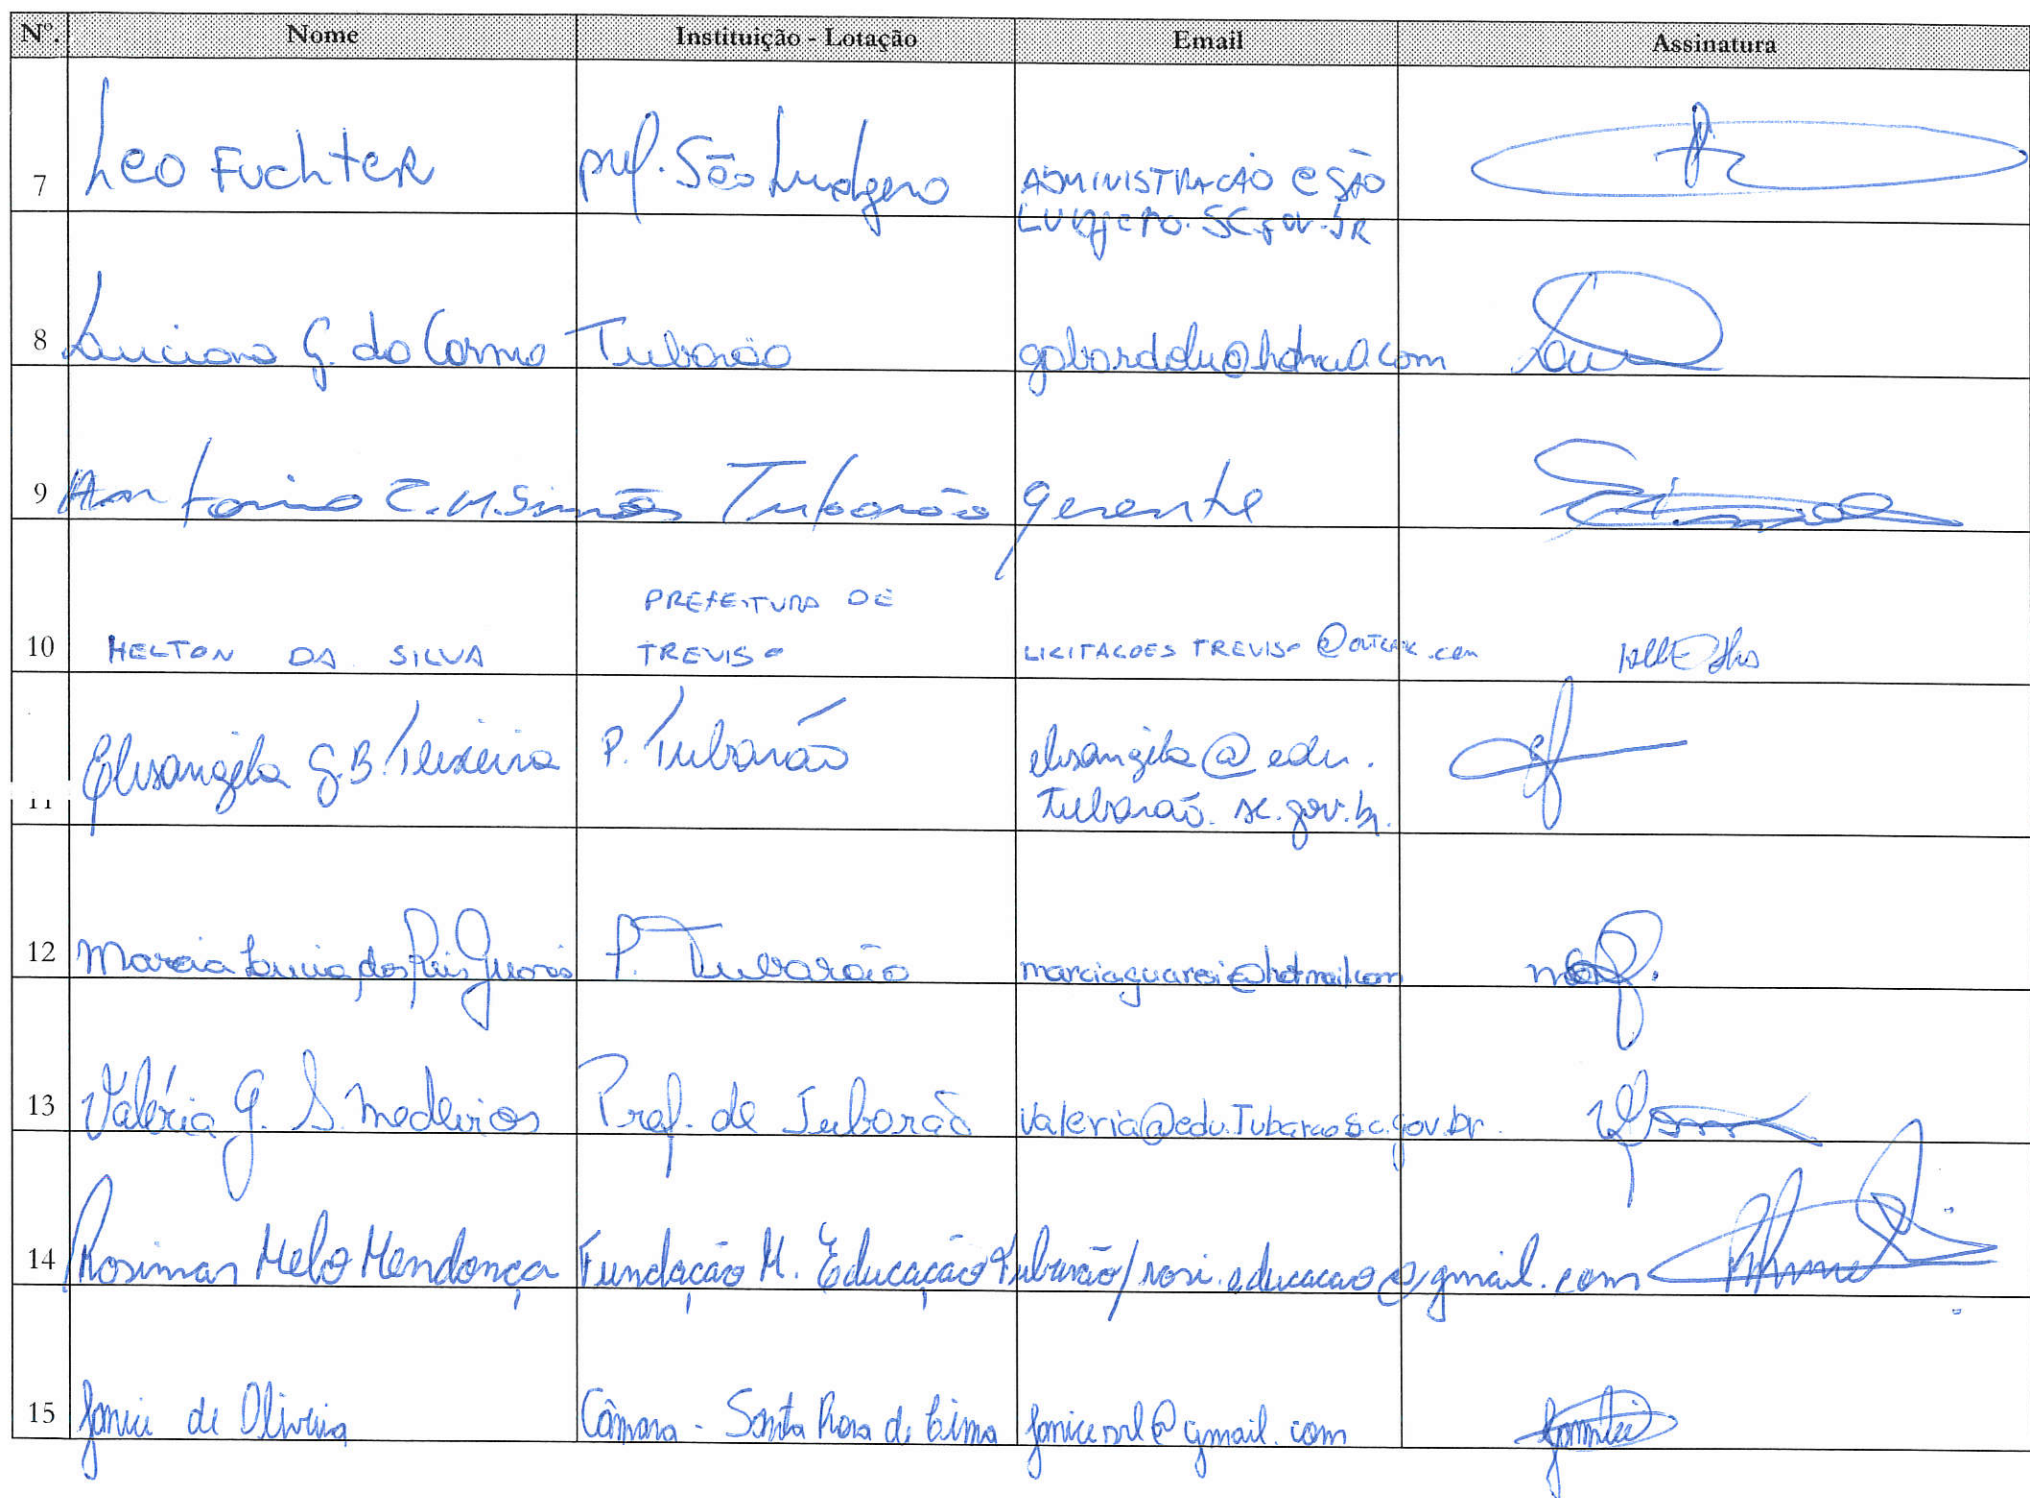 Nº. Nome Instituição - Lotação Email Assinatura
7 Leo Fuchter pref. São Ludgero ADMINISTRACAO @ SAO
LUDGERO.SC.GOV.BR
8 Luciana G. do Carmo Tubarão gabardolu@hotmail.com
9 Antonio C. M. Simões Tubarão gerente
10 HELTON DA SILVA PREFEITURA DE
TREVISO LICITACOES TREVISO @OUTLOOK.COM
11 Elisangela G.B. Teixeira P. Tubarão elisangela@edu.
tubarão.sc.gov.br.
12 Marcia Lucia dos Reis P. Tubarão marciaguaresi@hotmail.com
13 Valéria G. S. Medeiros Pref. de Tubarão valeria@edu.Tubarao.sc.gov.br.
14 Rosimar Melo Mendonça Fundação M. Educação Tubarão/rosi.educacao@gmail.com
15 Janice de Oliveira Câmara - Santa Rosa de Lima